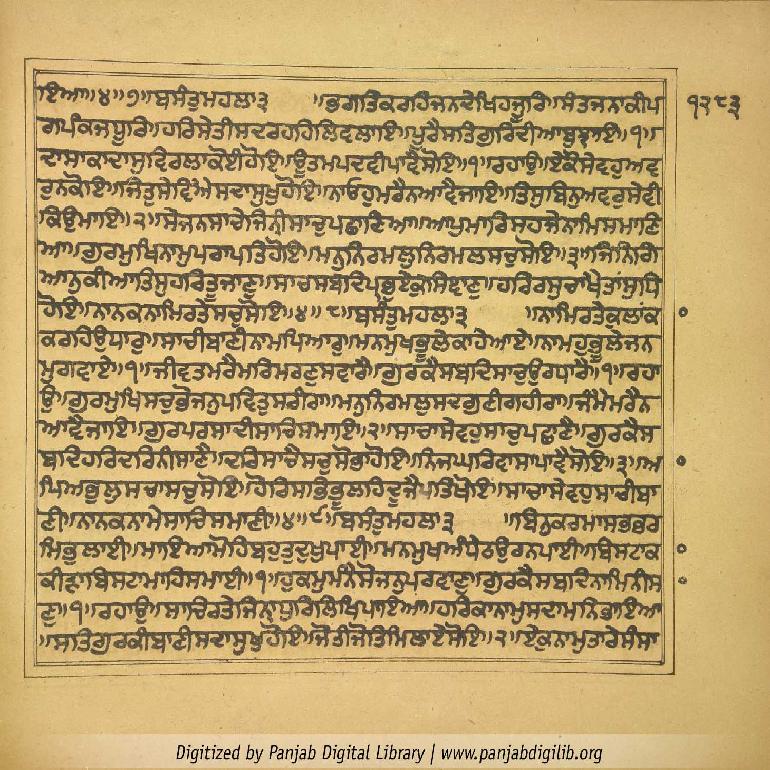 ਇਆ॥੪॥੭॥ਬਸੰਤੁਮਹਲਾ੩ ॥ਭਗਤਿਕਰਹਿਜਨਦੇਖਿਹਜੂਰਿ॥ਸੰਤਜਨਾਕੀਪ
੧੨੮੩
ਗਪੰਕਜਧੂਰਿ॥ਹਰਿਸੇਤੀਸਦਰਹਹਿਲਿਵਲਾਇ॥ਪੂਰੈਸਤਿਗੁਰਿਦੀਆਬੁਝਾਇ॥੧॥
ਦਾਸਾਕਾਦਾਸੁਵਿਰਲਾਕੋਈਹੋਇ॥ਊਤਮਪਦਵੀਪਾਵੈਸੋਇ॥੧॥ਰਹਾਉ॥ਏਕੋਸੇਵਹੁਅਵ
ਰੁਨਕੋਇ॥ਜਿਤੁਸੇਵਿਐਸਦਾਸੁਖੁਹੋਇ॥ਨਾਓਹੁਮਰੈਨਆਵੈਜਾਇ॥ਤਿਸੁਬਿਨੁਅਵਰੁਸੇਵੀ
ਕਿਉਮਾਇ॥੨॥ਸੇਜਨਸਾਚੇਜਿਨੀਸਾਚੁਪਛਾਣਿਆ॥ਆਪੁਮਾਰਿਸਹਜੇਨਾਮਿਸਮਾਣਿ
ਆ॥ਗੁਰਮੁਖਿਨਾਮੁਪਰਾਪਤਿਹੋਇ॥ਮਨੁਨਿਰਮਲੁਨਿਰਮਲਸਚੁਸੋਇ॥੩॥ਜਿਨਿਗਿ
ਆਨੁਕੀਆਤਿਸੁਹਰਿਤੂਜਾਣੁ॥ਸਾਚਸਬਦਿਪ੍ਰਭੁਏਕੁਸਿਞਾਣੁ॥ਹਰਿਰਸੁਚਾਖੈਤਾਂਸੁਧਿ
ਹੋਇ॥ਨਾਨਕਨਾਮਿਰਤੇਸਚੁਸੋਇ॥੪॥੮॥ਬਸੰਤੁਮਹਲਾ੩ ॥ਨਾਮਿਰਤੇਕੁਲਾਂਕ
ਕਰਹਿਉਧਾਰੁ॥ਸਾਚੀਬਾਣੀਨਾਮਪਿਆਰੁ॥ਮਨਮੁਖਭੂਲੇਕਾਹੇਆਏ॥ਨਾਮਹੁਭੂਲੇਜਨ
ਮੁਗਵਾਏ॥੧॥ਜੀਵਤਮਰੈਮਰਿਮਰਣੁਸਵਾਰੈ॥ਗੁਰਕੈਸਬਦਿਸਾਚੁਉਰਧਾਰੈ॥੧॥ਰਹਾ
ਉ॥ਗੁਰਮੁਖਿਸਚੁਭੋਜਨੁਪਵਿਤੁਸਰੀਰਾ॥ਮਨੁਨਿਰਮਲੁਸਦਗੁਣੀਗਹੀਰਾ॥ਜੰਮੈਮਰੈਨ
ਆਵੈਜਾਇ॥ਗੁਰਪਰਸਾਦੀਸਾਚਿਸਮਾਇ॥੨॥ਸਾਚਾਸੇਵਹੁਸਾਚੁਪਛਾਣੈ॥ਗੁਰਕੈਸ
ਬਦਿਹਰਿਦਰਿਨੀਸਾਣੈ॥ਦਰਿਸਾਚੈਸਚੁਸੋਭਾਹੋਇ॥ਨਿਜਘਰਿਵਾਸਾਪਾਵੈਸੋਇ॥੩॥ਅ
ਪਿਅਭੁਲੁਸਚਾਸਚੁਸੋਇ॥ਹੋਰਿਸਭਿਭੂਲਹਿਦੂਜੈਪਤਿਖੋਇ॥ਸਾਚਾਸੇਵਹੁਸਾਚੀਬਾ
ਣੀ॥ਨਾਨਕਨਾਮੇਸਾਚਿਸਮਾਣੀ॥੪॥੯॥ਬਸੰਤੁਮਹਲਾ੩ ॥ਬਿਨੁਕਰਮਾਸਭਭਰ
ਮਿਭੁਲਾਈ॥ਮਾਇਆਮੋਹਿਬਹੁਤੁਦੁਖੁਪਾਈ॥ਮਨਮੁਖਅੰਧੇਠਉਰਨਪਾਈ॥ਬਿਸਟਾਕ
ਕੀੜਾਬਿਸਟਾਮਾਹਿਸਮਾਈ॥੧॥ਹੁਕਮੁਮੰਨੇਸੋਜਨੁਪਰਵਾਣੁ॥ਗੁਰਕੈਸਬਦਿਨਾਮਿਨੀਸ
ਣੁ॥੧॥ਰਹਾਉ॥ਸਾਚਿਰਤੇਜਿਨ੍ਹਾਧੁਰਿਲਿਖਿਪਾਇਆ॥ਹਰਿਕਾਨਾਮੁਸਦਾਮਨਿਭਾਇਆ
॥ਸਤਿਗੁਰਕੀਬਾਣੀਸਦਾਸੁਖੁਹੋਇ॥ਜੋਤੀਜੋਤਿਮਿਲਾਏਸੋਇ॥੨॥ਏਕੁਨਾਮੁਤਾਰੇਸੰਸਾ
Digitized by Panjab Digital Library | www.panjabdigilib.org